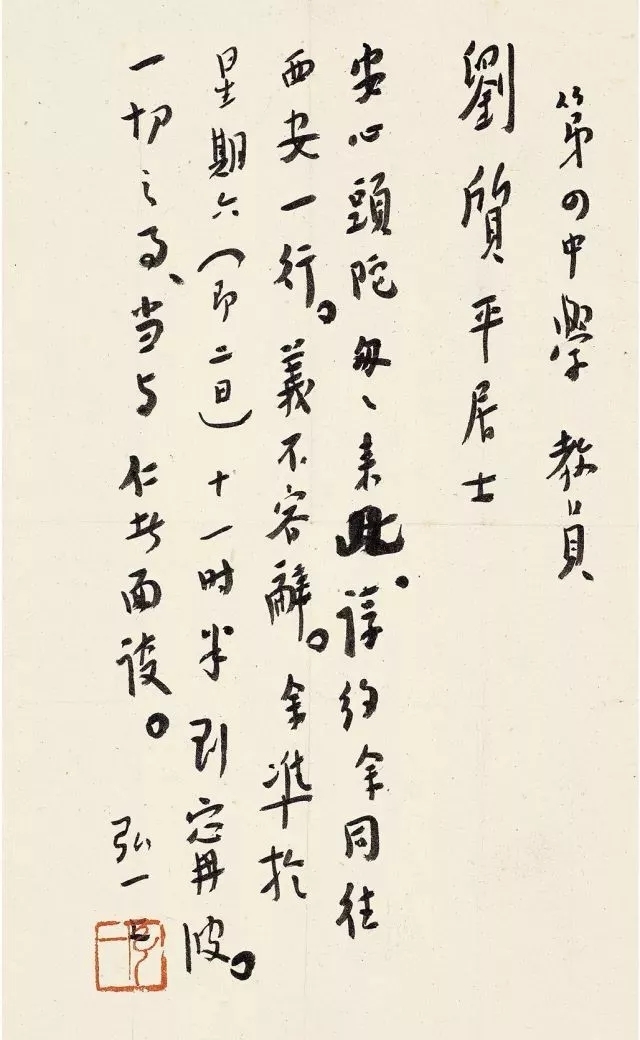 第四中學 教員
劉質平居士
安心頭陀匆、來此。諄約余同往
西安一行。義不容辭。余準於
星期六（即二日）十一時半到寗再波。
一切之事、當与仁者面談。
弘一上